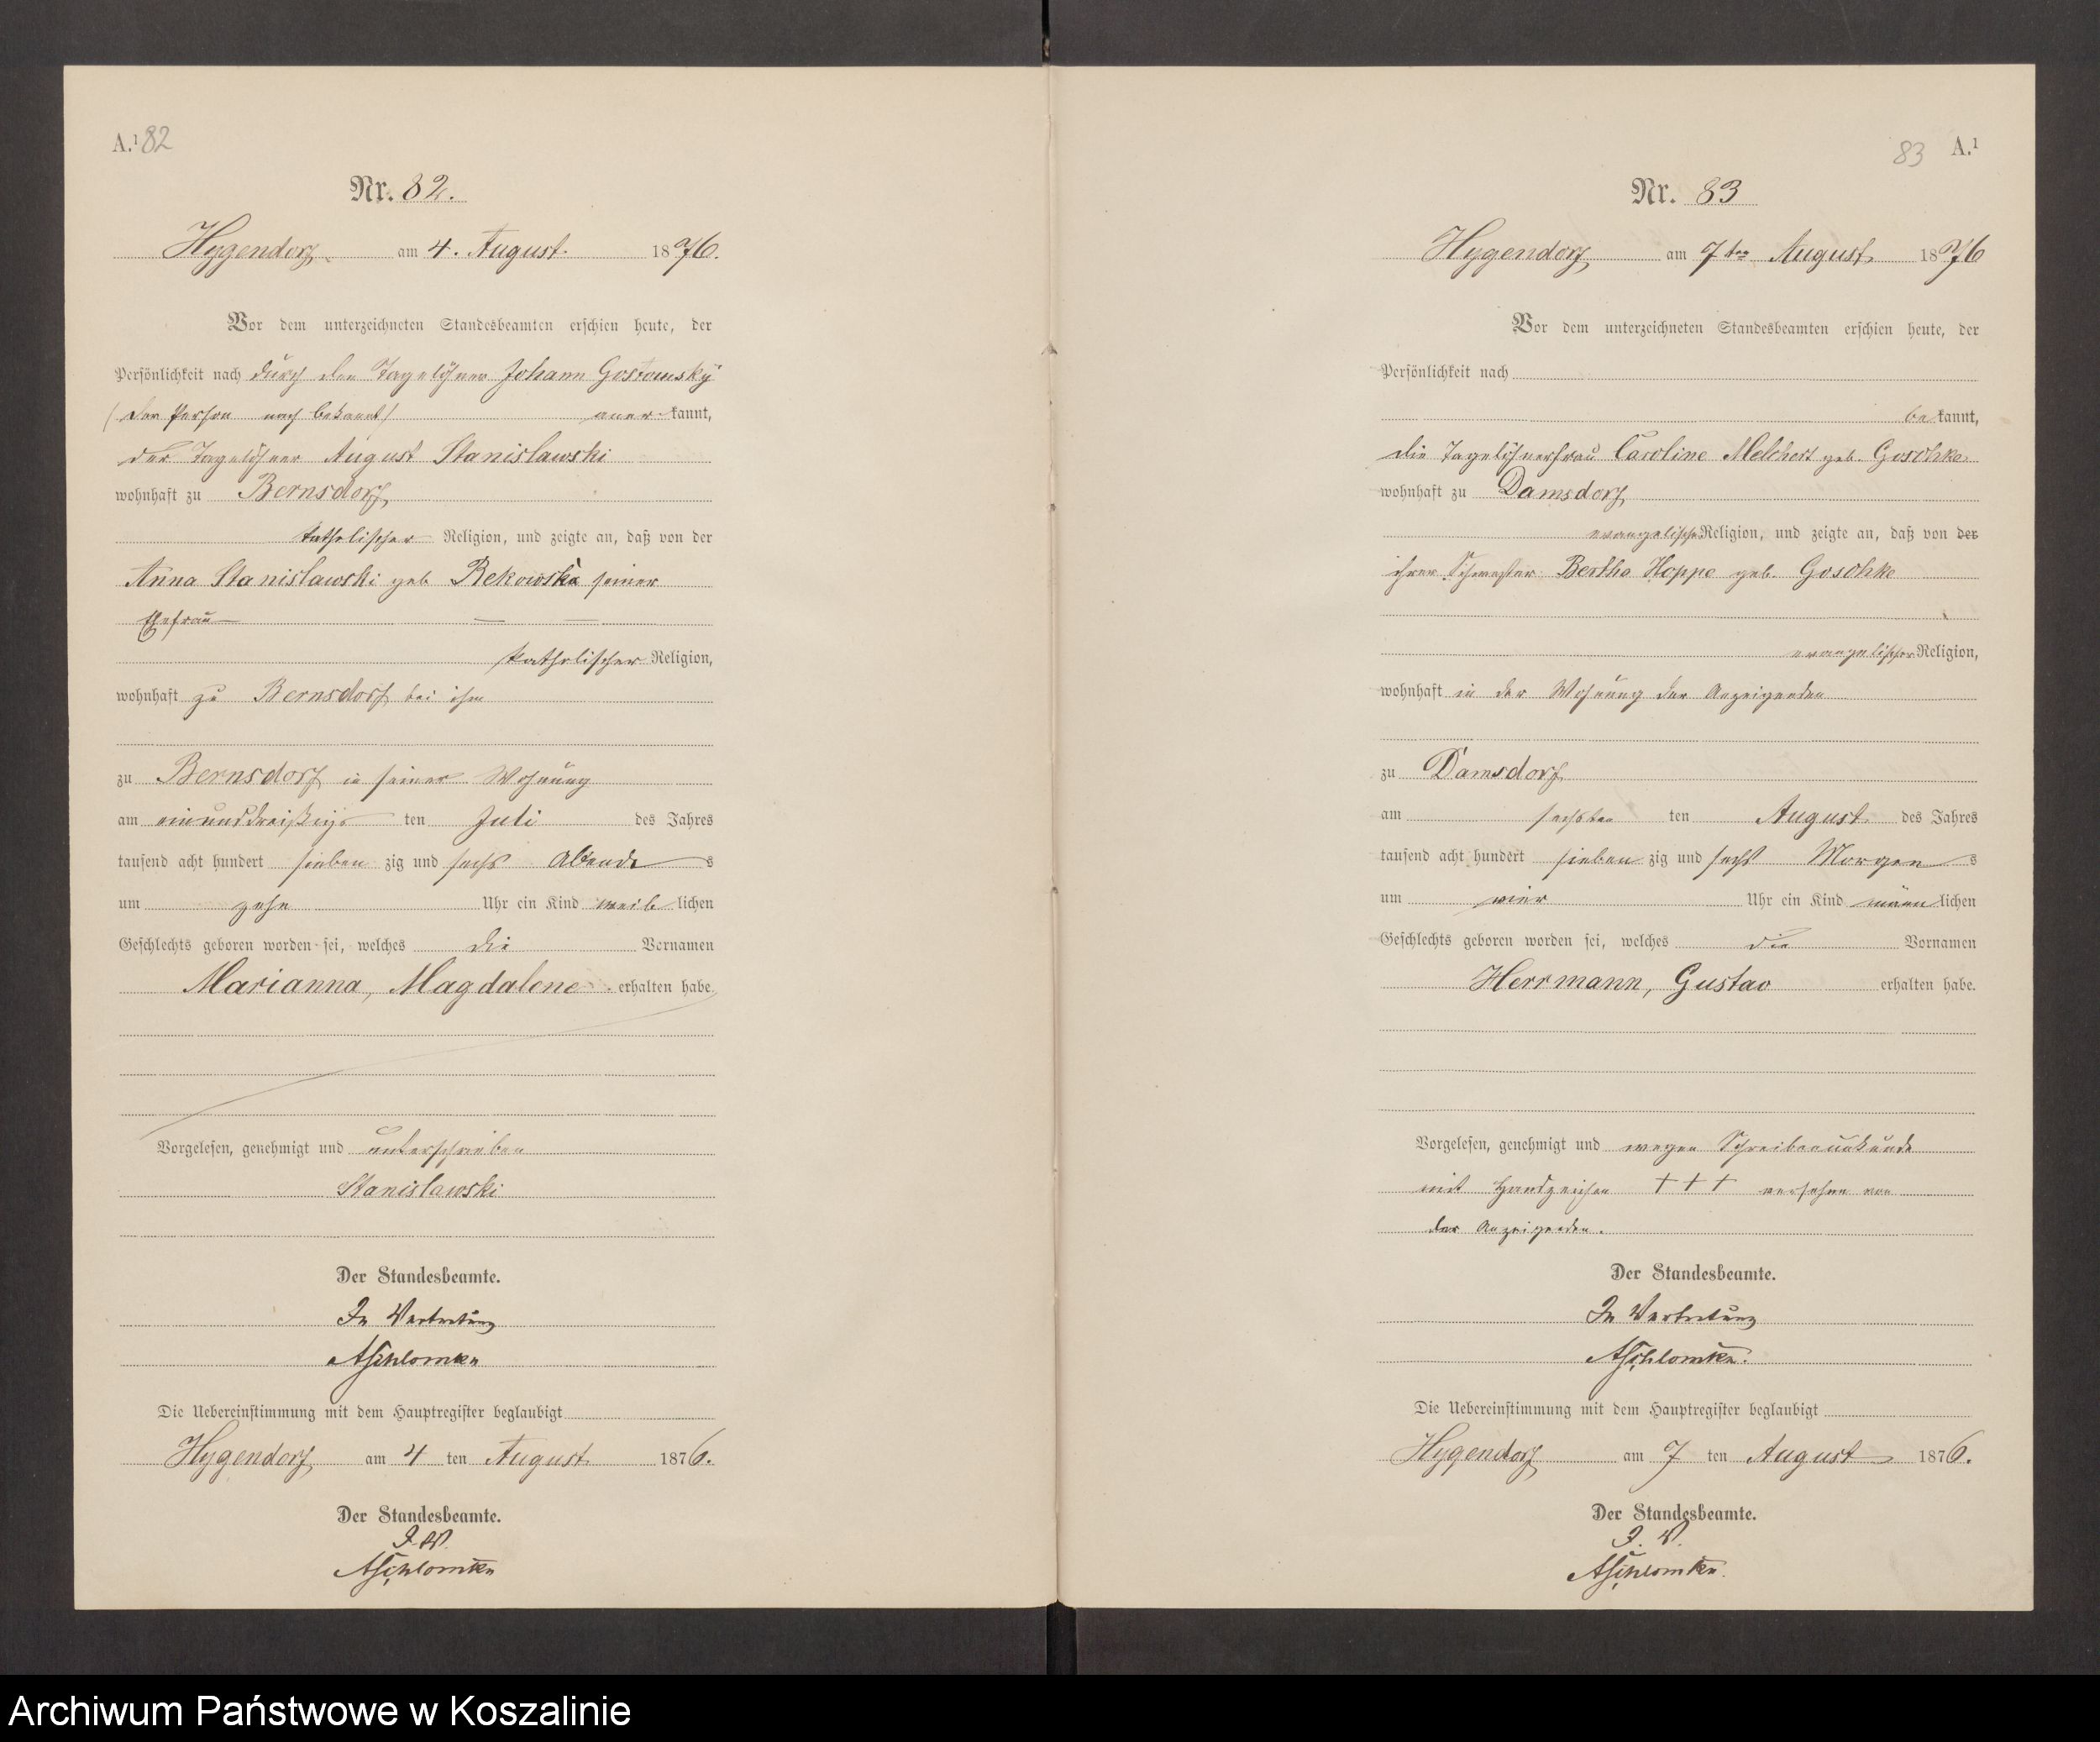 A.¹ 82
Nr. 82.
Hygendorf am 4. August 1876.
Vor dem unterzeichneten Standesbeamten erschien heute, der
Persönlichkeit nach durch den Tagelöhner Johann Gostomsky
(der Person nach bekannt) anerkannt,
der Tagelöhner August Stanislawski
wohnhaft zu Bernsdorf
katholischer Religion, und zeigte an, daß von der
Anna Stanislawski geb Rekowski seiner
Ehefrau
katholischer Religion,
wohnhaft zu Bernsdorf bei ihm
zu Bernsdorf in seiner Wohnung
am einunddreißigs ten Juli des Jahres
tausend acht hundert sieben zig und sechs Abends
um zehn Uhr ein Kind weiblichen
Geschlechts geboren worden sei, welches die Vornamen
Marianna, Magdalene erhalten habe.
Vorgelesen, genehmigt und unterschrieben
Stanislawski
Der Standesbeamte.
In Vertretung
Die Uebereinstimmung mit dem Hauptregister beglaubigt
Hygendorf am 4 ten August 1876.
Der Standesbeamte.
I. V.
83 A.¹
Nr. 83
Hygendorf am 7ten August 1876
Vor dem unterzeichneten Standesbeamten erschien heute, der
Persönlichkeit nach
bekannt,
die Tagelöhnerfrau Caroline Melchert geb. Goschke
wohnhaft zu Damsdorf
evangelischer Religion, und zeigte an, daß von der
ihrer Schwester Bertha Hoppe geb. Goschke
evangelischer Religion,
wohnhaft in der Wohnung der Anzeigenden
zu Damsdorf
am sechsten ten August des Jahres
tausend acht hundert sieben zig und sechs Morgens
um vier Uhr ein Kind männlichen
Geschlechts geboren worden sei, welches die Vornamen
Herrmann, Gustav erhalten habe.
Vorgelesen, genehmigt und wegen Schreibensunkunde
mit Handzeichen +++ versehen von
der Anzeigenden.
Der Standesbeamte.
In Vertretung
Die Uebereinstimmung mit dem Hauptregister beglaubigt
Hygendorf am 7 ten August 1876.
Der Standesbeamte.
I. V.
Archiwum Państwowe w Koszalinie